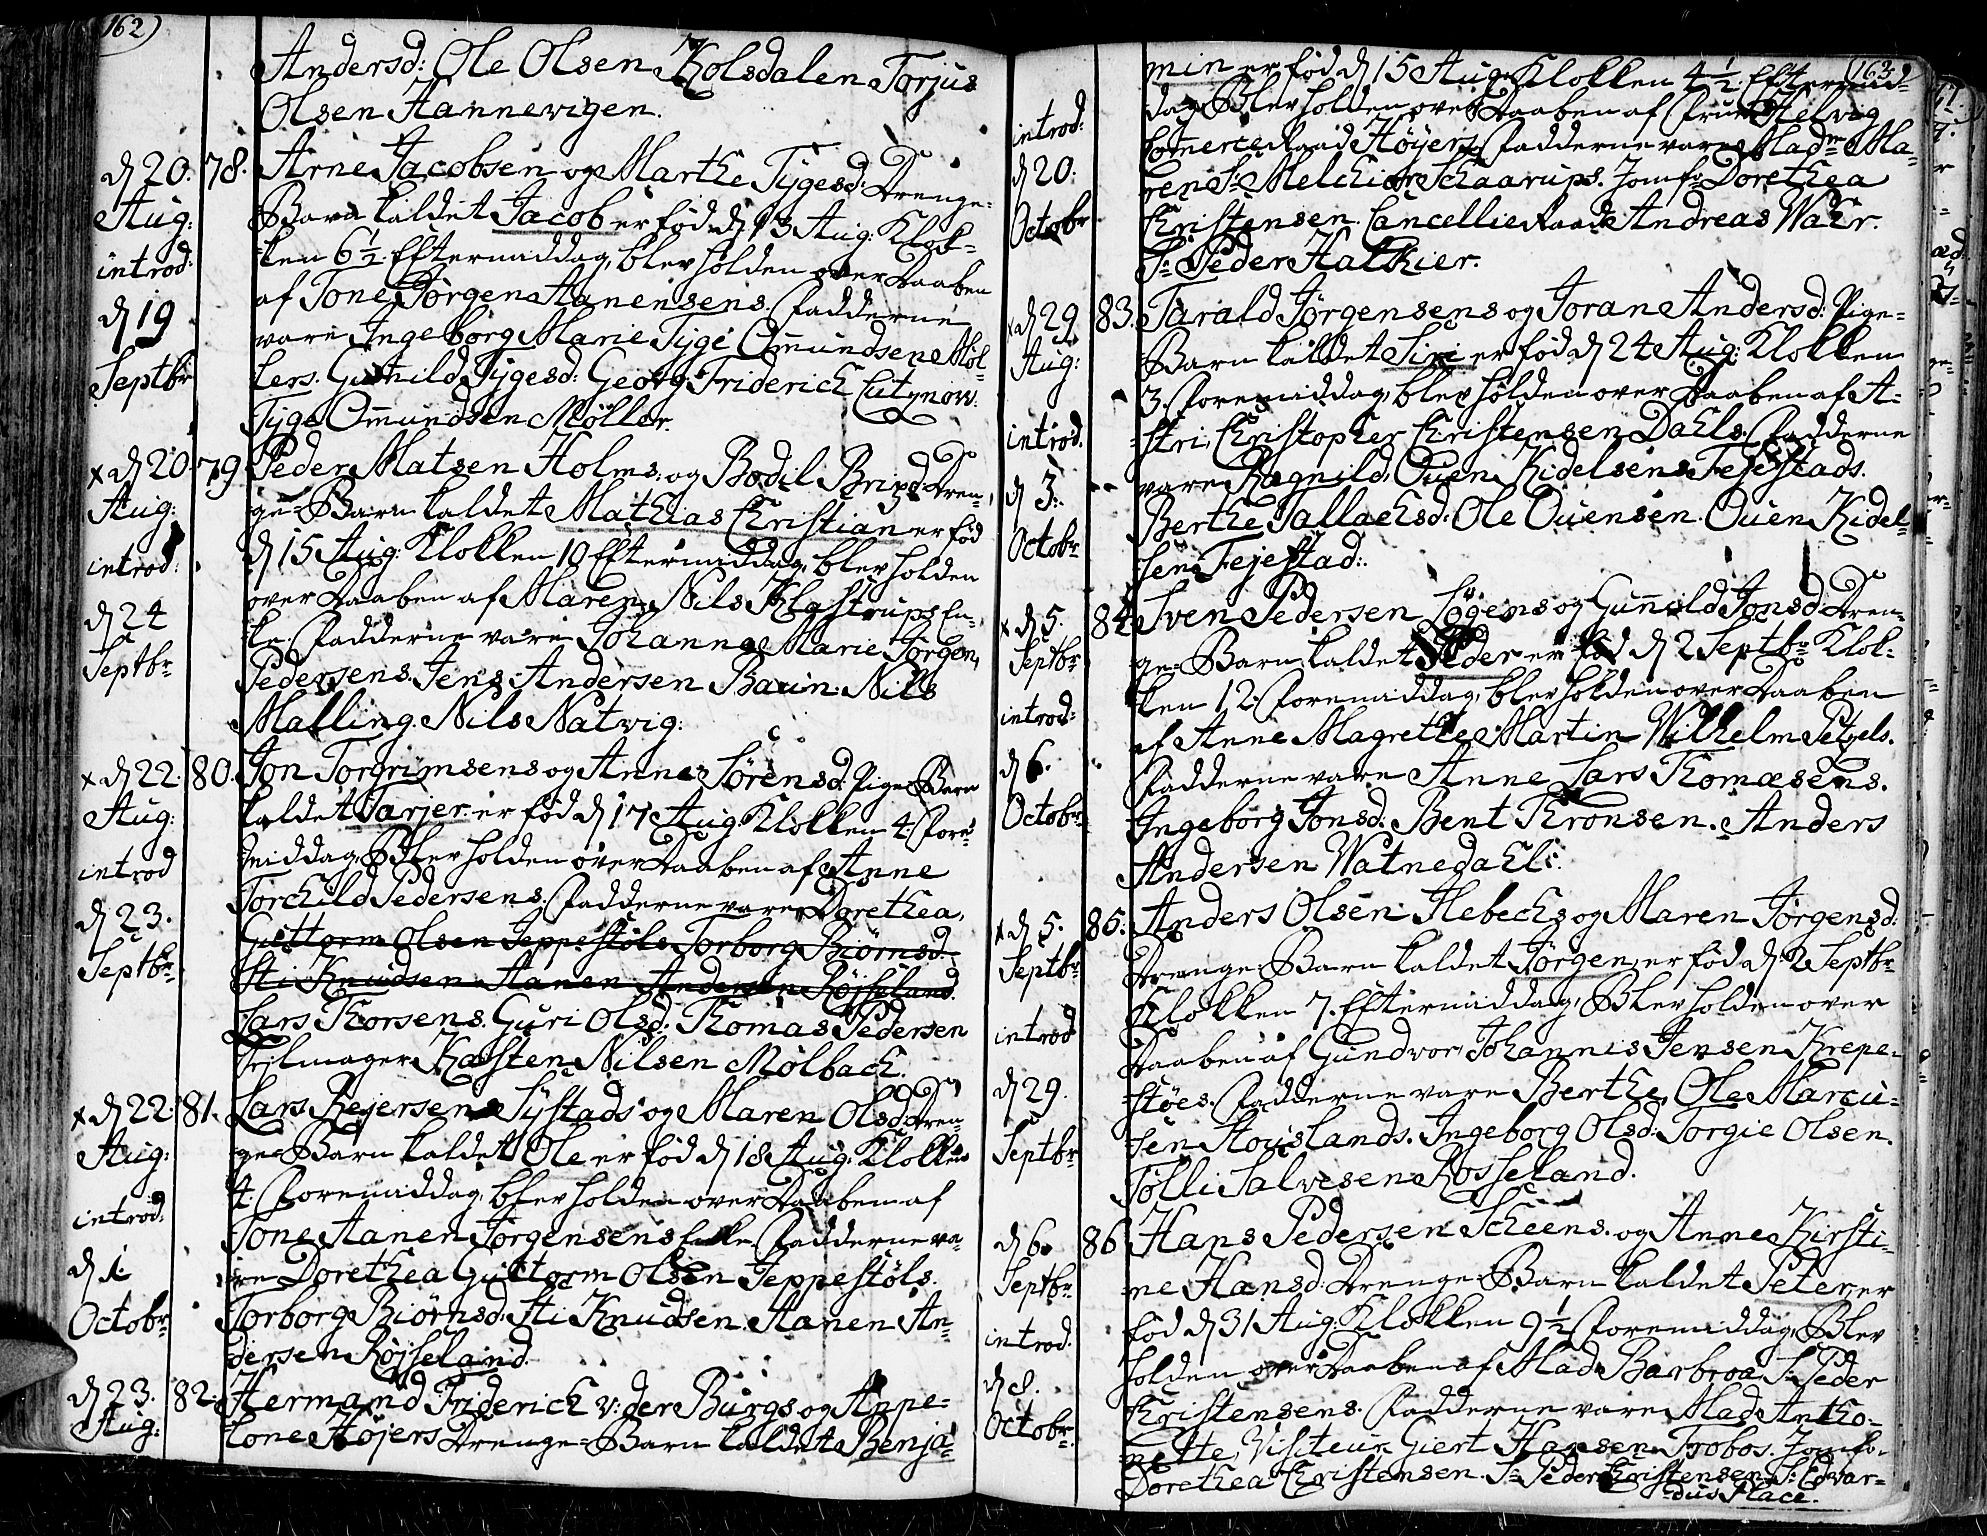 162)
Andersd: Ole Olsen Kolsdalen Torjus
Olsen Hannevigen.
d 20. Aug: introd: d 19 Septbr
78. Arne Jacobsen og Marthe Tygesd: Drenge-
Barn kaldet Jacob er fød d 13 Aug: Klok-
ken 6½. Eftermiddag, blev holden over Daaben
af Tone Jørgen Aanensens. Fadderne
vare Ingeborg Marie Tyge Omundsen Møl-
lers. Gunild Tygesd: Georg Friderich
Tyge Omundsen Møller.
x d 20 Aug: introd: d 24 Septbr
79 Peder Matsen Holms og Bodil Dren-
ge-Barn kaldet Mathias Christian er fød
d 15 Aug: Klokken 10 Eftermiddag, blev holden
over Daaben af Maren Nils Klastrups En-
ke. Fadderne vare Johanna Marie Jørgen
Pedersens. Jens Andersen Nils
Malling. Nils Natvig:
x d 22. Aug: introd d 23. Septbr
80. Jon Torgrimsens og Anne Sørensd: Pige Barn
kaldet Tarjer er fød d 17 Aug: Klokken 4. Fore-
middag, Blev holden over Daaben af Anne
Torchild Pedersens. Fadderne vare Dorethea,
Guttorm Olsen Jeppestøls Torborg Biørnsd.
Sti Knudsen Aanen Andersen Røjseland.
Lars Thorsens. Guri Olsd: Thomas Pedersen
Seilmager. Karsten Nilsen Mølbach.
x d 22. Aug: introd: d 1. Octobr:
81. Lars Rejersen Systads og Maren Olsd: Dren-
ge-Barn kaldet Ole er fød d 18 Aug: Klokken
4. Foremiddag, blev holden over Daaben af
Tone Aanen Jørgensens Enke. Fadderne va-
re Dorethea Guttorm Olsen Jeppestøls.
Torborg Biørnsd: Sti Knudsen. Aanen An-
dersen Røjseland.
d 23. Aug:
82. Hermand Friderich v: der Burgs og Appe-
lone Højers Drenge-Barn kaldet Benja-
163
introd: d 20. Octobr
min er fød d 15 Aug: Klokken 4½. Eftermid-
dag, Blev holden over Daaben af Frue Helvig
Comerce Raad Højers, Fadderne vare Madme Ma-
ren Sr: Melchior Schaarups. Jomfr: Dorethea
Christensen. Cancellie Raad Andreas Wahr.
Sr: Peder Halkier.
x d 29. Aug: introd. d 3. Octobr
83. Tarald Jørgensens og Jorane Andersd: Pige-
Barn kaldet Siri er fød d 24 Aug: Klokken
3. Foremiddag, blev holden over Daaben af A-
stri, Christopher Christensen Dahls. Fadderne
vare Ragnild, Ouen Kidelsens Fejestads.
Berthe Tallachsd: Ole Ouensen. Ouen Kidel-
sen Fejestad:
x d 5. Septbr introd: d 6. Octobr:
84. Sven Pedersen Løgens og Gunnild Jonsd: Dren-
ge-Barn kaldet Peder er fød d 2 Septbr Klok-
ken 12. Foremiddag, blev holden over Daaben
af Anne Magrethe Martin Wilhelm Petzels.
Fadderne vare Anne Lars Thomæsens.
Ingeborg Jonsd: Bent Thronsen. Anders
Andersen Watnedahl:
x d 5. Septbr introd d 29. Septbr
85. Anders Olsen Hebechs og Maren Jørgensd:
Drenge-Barn kaldet Jørgen, er fød d 2 Septbr
Klokken 7. Eftermiddag, Blev holden over
Daaben af Gundvor, Johannis Jensen Krepe-
støes. Fadderne vare Berthe, Ole Marcu-
sen Houslands. Ingeborg Olsd: Torgie Olsen.
Tolli Salvesen Rosseland.
d 6. Septbr introd. d 8. Octobr.
86 Hans Pedersen Scheens og Anne Kirsti-
ne Hansd: Drenge-Barn kaldet Peter, er
fød d 31 Aug: Klokken 9½ Foremiddag, Blev
holden over Daaben af Mad: Barbroa Sr: Peder
Christensens. Fadderne vare Mad: Antho-
nette, Visiteur Giert Hansen Trobos. Jomfr.
Dorethea Christensen. Sr: Peder Christensen. Sr: Edvar-
dus Place.